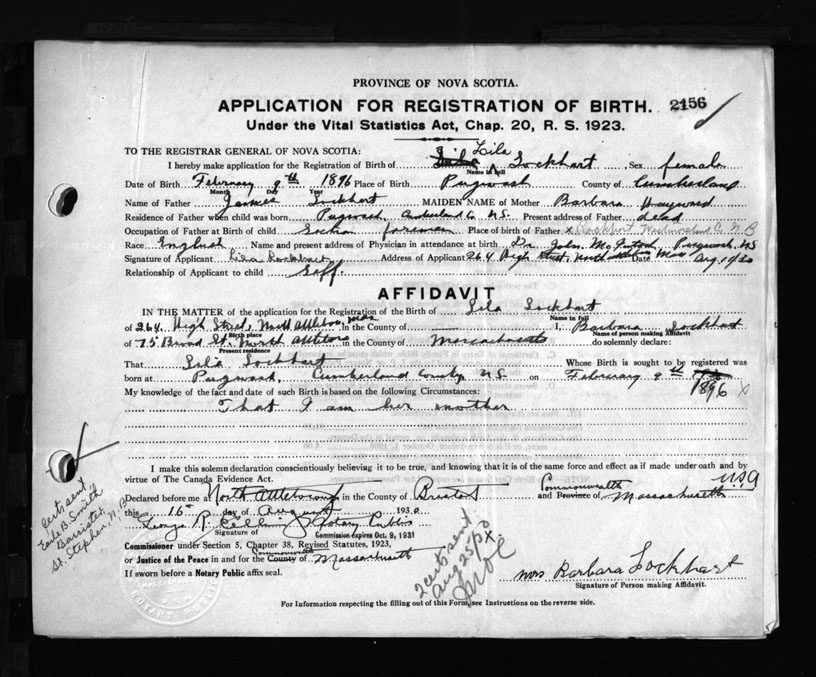 PROVINCE OF NOVA SCOTIA.
APPLICATION FOR REGISTRATION OF BIRTH. 2156
Under the Vital Statistics Act, Chap. 20, R. S. 1923.
TO THE REGISTRAR GENERAL OF NOVA SCOTIA: Lila
I hereby make application for the Registration of Birth of Lockhart Sex female
Name in full
Date of Birth February 9th 1896 Place of Birth Pugwash County of Cumberland
Month Day Year
Name of Father James Lockhart MAIDEN NAME of Mother Barbara Hayward
Residence of Father when child was born Pugwash, Cumberland Co. N.S. Present address of Father dead
Occupation of Father at Birth of child Section foreman Place of birth of Father x Rockport Westmorland Co. N B
Race English Name and present address of Physician in attendance at birth Dr. John Pugwash, NS
Signature of Applicant Lila Lockhart Address of Applicant 264 High Street, North Attleboro Mass Date Aug 15/30
Relationship of Applicant to child Self.
AFFIDAVIT
IN THE MATTER of the application for the Registration of the Birth of Lila Lockhart
Name in full
of 264 High Street, North Attleboro, Mass In the County of I, Barbara Lockhart
Birth place Name of person making Affidavit
of 75 Broad St. North Attleboro in the County of Massachusetts do solemnly declare:
Present residence
That Lila Lockhart Whose Birth is sought to be registered was
born at Pugwash, Cumberland County N.S. on February 9th 1896 x
My knowledge of the fact and date of such Birth is based on the following Circumstances:
That I am her mother
I make this solemn declaration conscientiously believing it to be true, and knowing that it is of the same force and effect as if made under oath and by
virtue of The Canada Evidence Act.
Commonwealth USA
Declared before me at North Attleborough in the County of Bristol and Province of Massachusetts
this 15 day of August 1930
George R. Notary Public
Signature of Commission expires Oct. 9, 1931
Commissioner under Section 5, Chapter 38, Revised Statutes, 1923,
Commonwealth
or Justice of the Peace in and for the County of Massachusetts
If sworn before a Notary Public affix seal.
Mrs Barbara Lockhart
Signature of Person making Affidavit.
For Information respecting the filling out of this Form, see Instructions on the reverse side.
Certs sent
Earle B. Smith
Barrister,
St. Stephen, N.B
2 certs sent
Aug 25/30 X